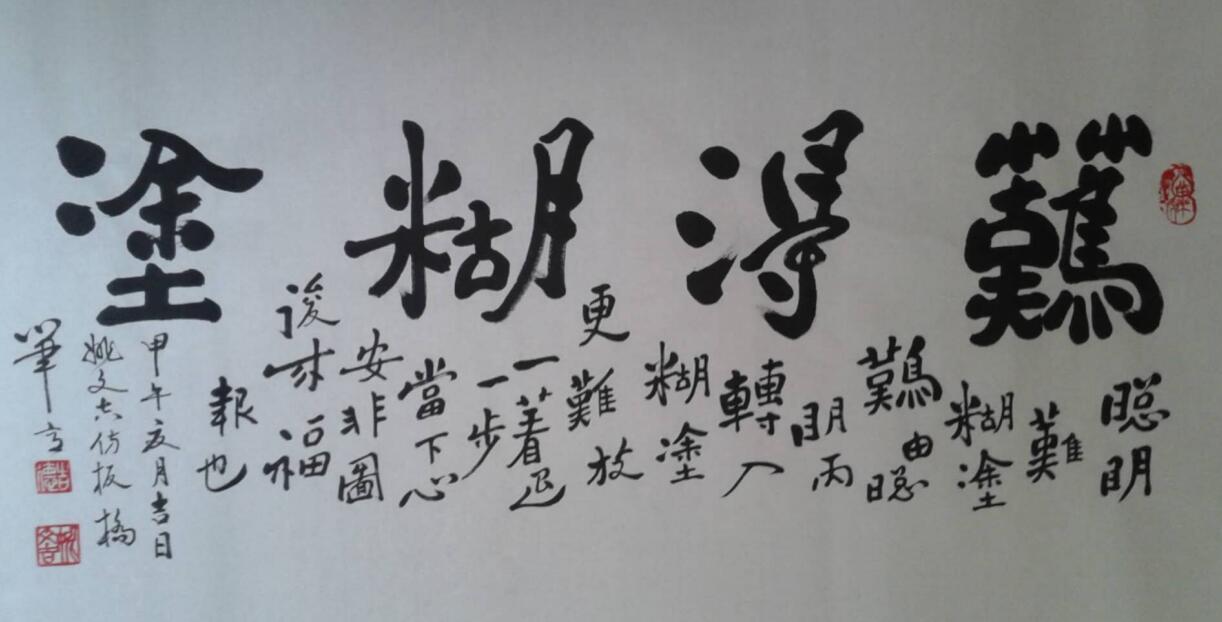 難得糊塗
聰明
難
糊塗
難由聰
明而
轉入
糊塗
更難放
一著退
一步
當下心
安非圖
後来福
報也
甲午月吉日
姚文仿板橋
筆意